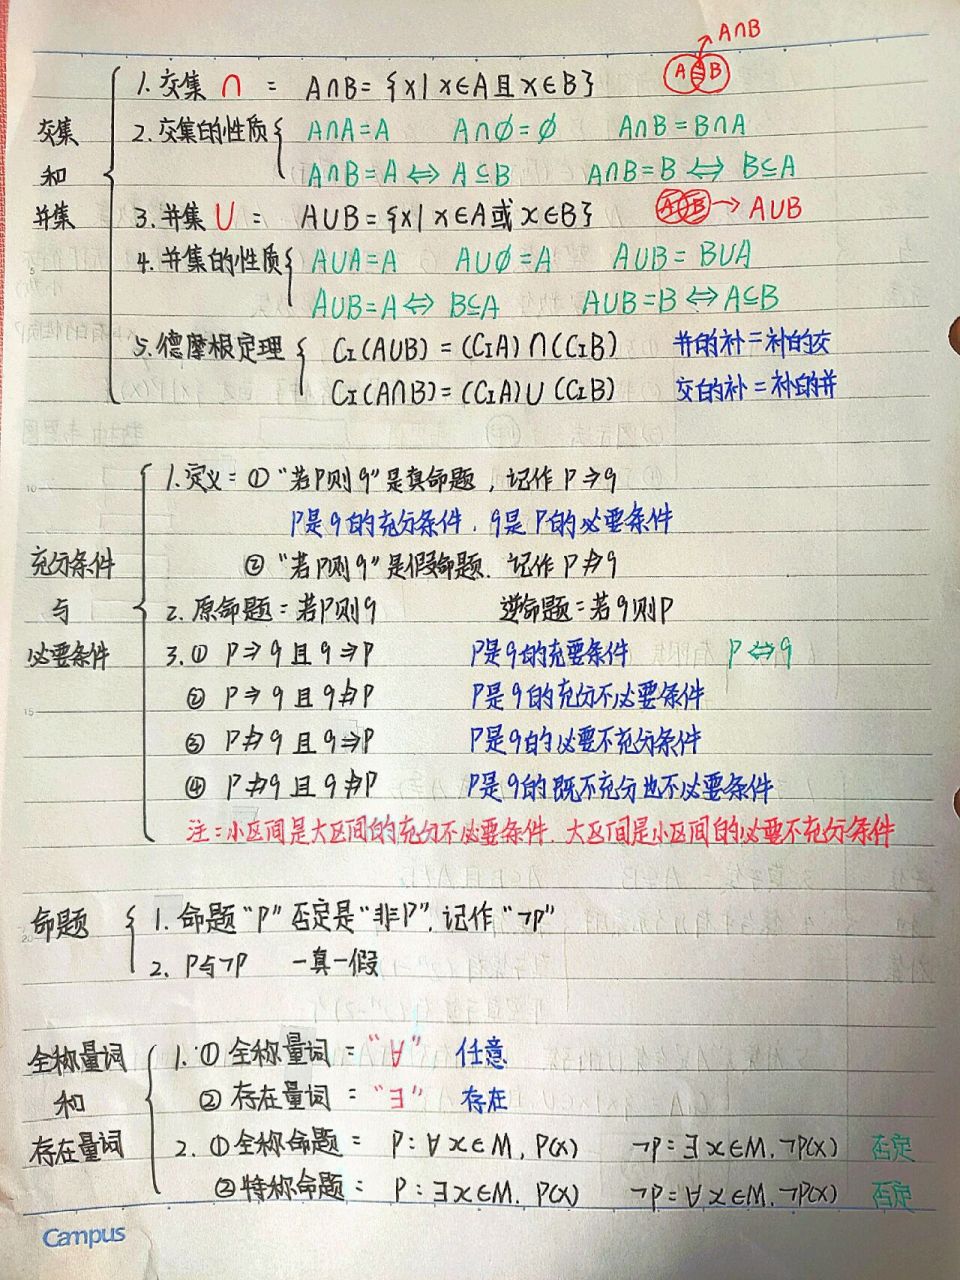 A∩B
1. 交集 ∩ = A∩B = {x| x∈A 且 x∈B} A B
交集 2. 交集的性质 { A∩A=A A∩∅=∅ A∩B=B∩A
和 A∩B=A⇔A⊆B A∩B=B⇔B⊆A
并集 3. 并集 ∪ = A∪B={x| x∈A 或 x∈B} A B → A∪B
4. 并集的性质 { A∪A=A A∪∅=A A∪B=B∪A
A∪B=A⇔B⊆A A∪B=B⇔A⊆B
5. 德摩根定理 { C_I(A∪B) = (C_IA)∩(C_IB) 并的补=补的交
C_I(A∩B) = (C_IA)∪(C_IB) 交的补=补的并
1. 定义= ① “若P则q”是真命题,记作 P⇒q
P是q的充分条件. q是P的必要条件
充分条件 ② “若P则q”是假命题. 记作 P⇏q
与 2. 原命题=若P则q 逆命题=若q则P
必要条件 3. ① P⇒q 且 q⇒P P是q的充要条件 P⇔q
② P⇒q 且 q⇏P P是q的充分不必要条件
③ P⇏q 且 q⇒P P是q的必要不充分条件
④ P⇏q 且 q⇏P P是q的既不充分也不必要条件
注=小区间是大区间的充分不必要条件. 大区间是小区间的必要不充分条件
命题 { 1. 命题“P”否定是“非P”. 记作“¬P”
2. P与¬P 一真一假
全称量词 1. ① 全称量词 = “∀” 任意
和 ② 存在量词 = “∃” 存在
存在量词 2. ① 全称命题 = P:∀x∈M, P(x) ¬P:∃x∈M. ¬P(x) 否定
② 特称命题 = P:∃x∈M. P(x) ¬P=∀x∈M. ¬P(x) 否定
Campus